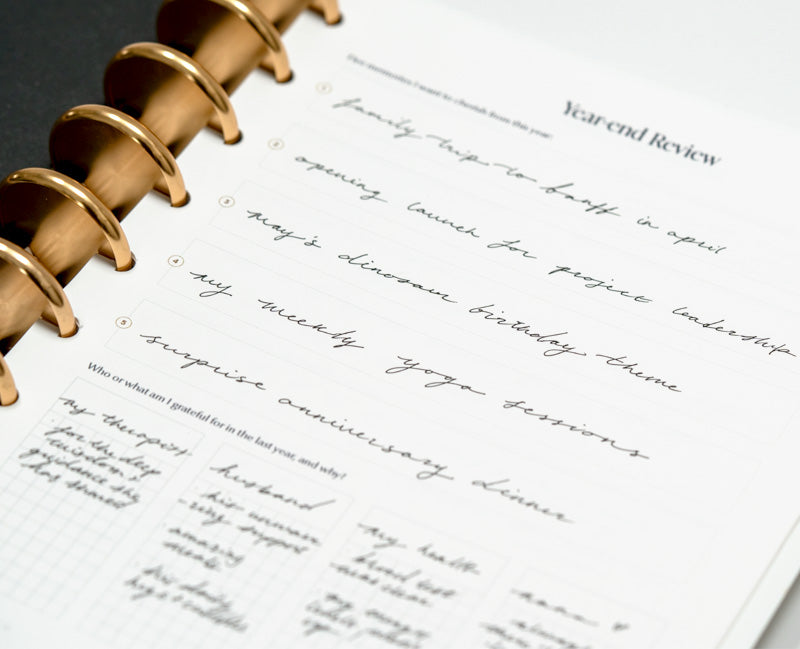 Year-end Review
Five memories I want to cherish from this year:
1
family trip to banff in april
2
opening launch for project leadership
3
may's dinosaur birthday theme
4
my weekly yoga sessions
5
surprise anniversary dinner
Who or what am I grateful for in the last year, and why?
my therapist
for the deep
wisdom &
guidance she
has shared
husband
his unwave
-ring support
amazing
meals
his daily
hugs & cuddles
my health
blood test
was clear
my
mama ♥
always